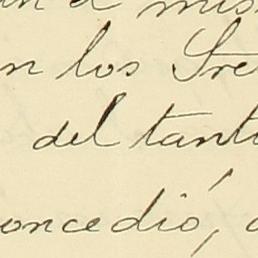 a mis
n los Sre
del tant
oncedió,